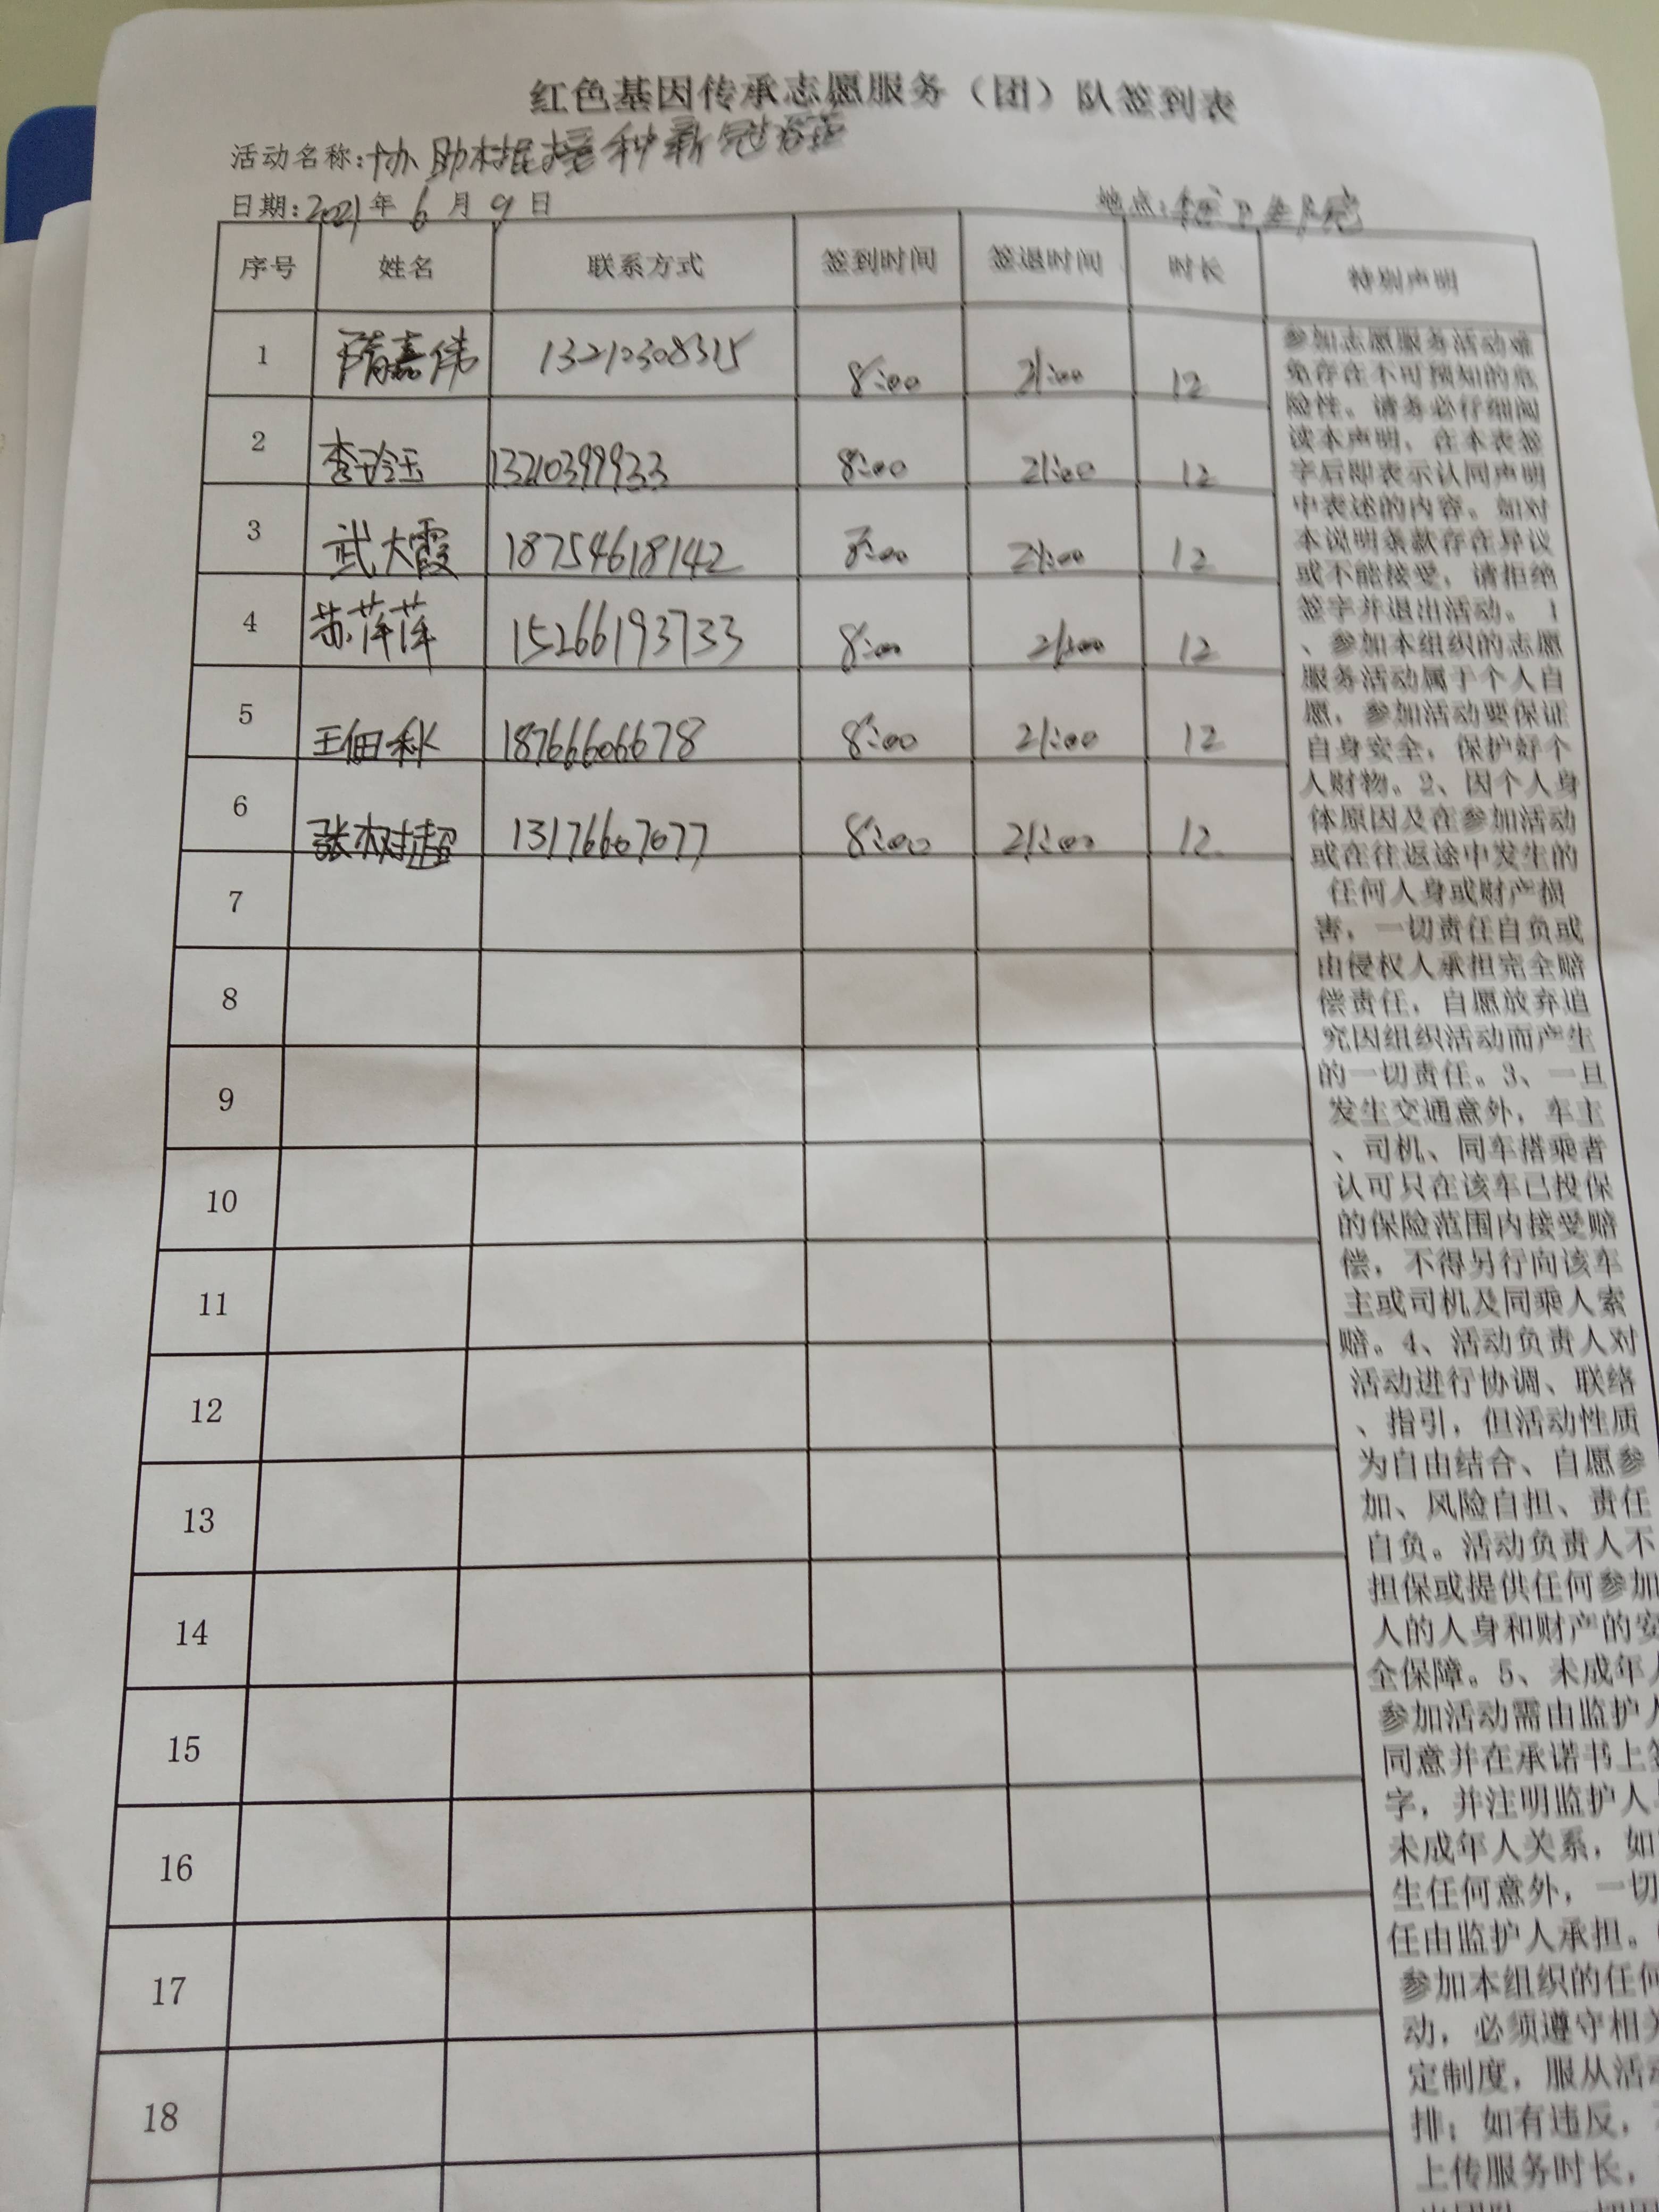 红色基因传承志愿服务（团）队签到表
活动名称:协助村民接种新冠疫苗
日期:2021年6月9日 地点:镇卫生院
序号 姓名 联系方式 签到时间 签退时间 时长 特别声明
1 隋嘉伟 13210308315 8:00 21:00 12
2 李玲玉 13210399933 8:00 21:00 12
3 武大霞 18754618142 8:00 21:00 12
4 苏萍萍 15266193733 8:00 21:00 12
5 王佃秋 18766606678 8:00 21:00 12
6 张树超 13176607077 8:00 21:00 12
7
8
9
10
11
12
13
14
15
16
17
18
参加志愿服务活动难
免存在不可预知的危
险性。请务必仔细阅
读本声明，在本表签
字后即表示认同声明
中表述的内容。如对
本说明条款存在异议
或不能接受，请拒绝
签字并退出活动。1
、参加本组织的志愿
服务活动属于个人自
愿，参加活动要保证
自身安全，保护好个
人财物。2、因个人身
体原因及在参加活动
或在往返途中发生的
任何人身或财产损
害，一切责任自负或
由侵权人承担完全赔
偿责任，自愿放弃追
究因组织活动而产生
的一切责任。3、一旦
发生交通意外，车主
、司机、同车搭乘者
认可只在该车已投保
的保险范围内接受赔
偿，不得另行向该车
主或司机及同乘人索
赔。4、活动负责人对
活动进行协调、联络
、指引，但活动性质
为自由结合、自愿参
加、风险自担、责任
自负。活动负责人不
担保或提供任何参加
人的人身和财产的安
全保障。5、未成年人
参加活动需由监护人
同意并在承诺书上签
字，并注明监护人与
未成年人关系，如
生任何意外，一切
任由监护人承担。
参加本组织的任何
动，必须遵守相关
定制度，服从活动
排；如有违反，
上传服务时长，